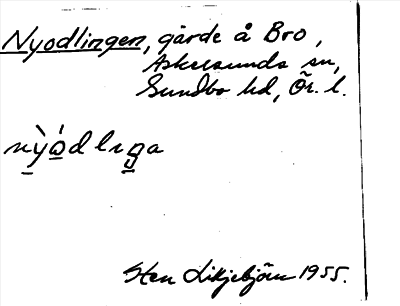 Nyodlingen, gärde å Bro,
Askersunds sn,
Sundbo hd, Ör. l.
nỳó̱dlıṉa
Sten Liljebjörn 1955.